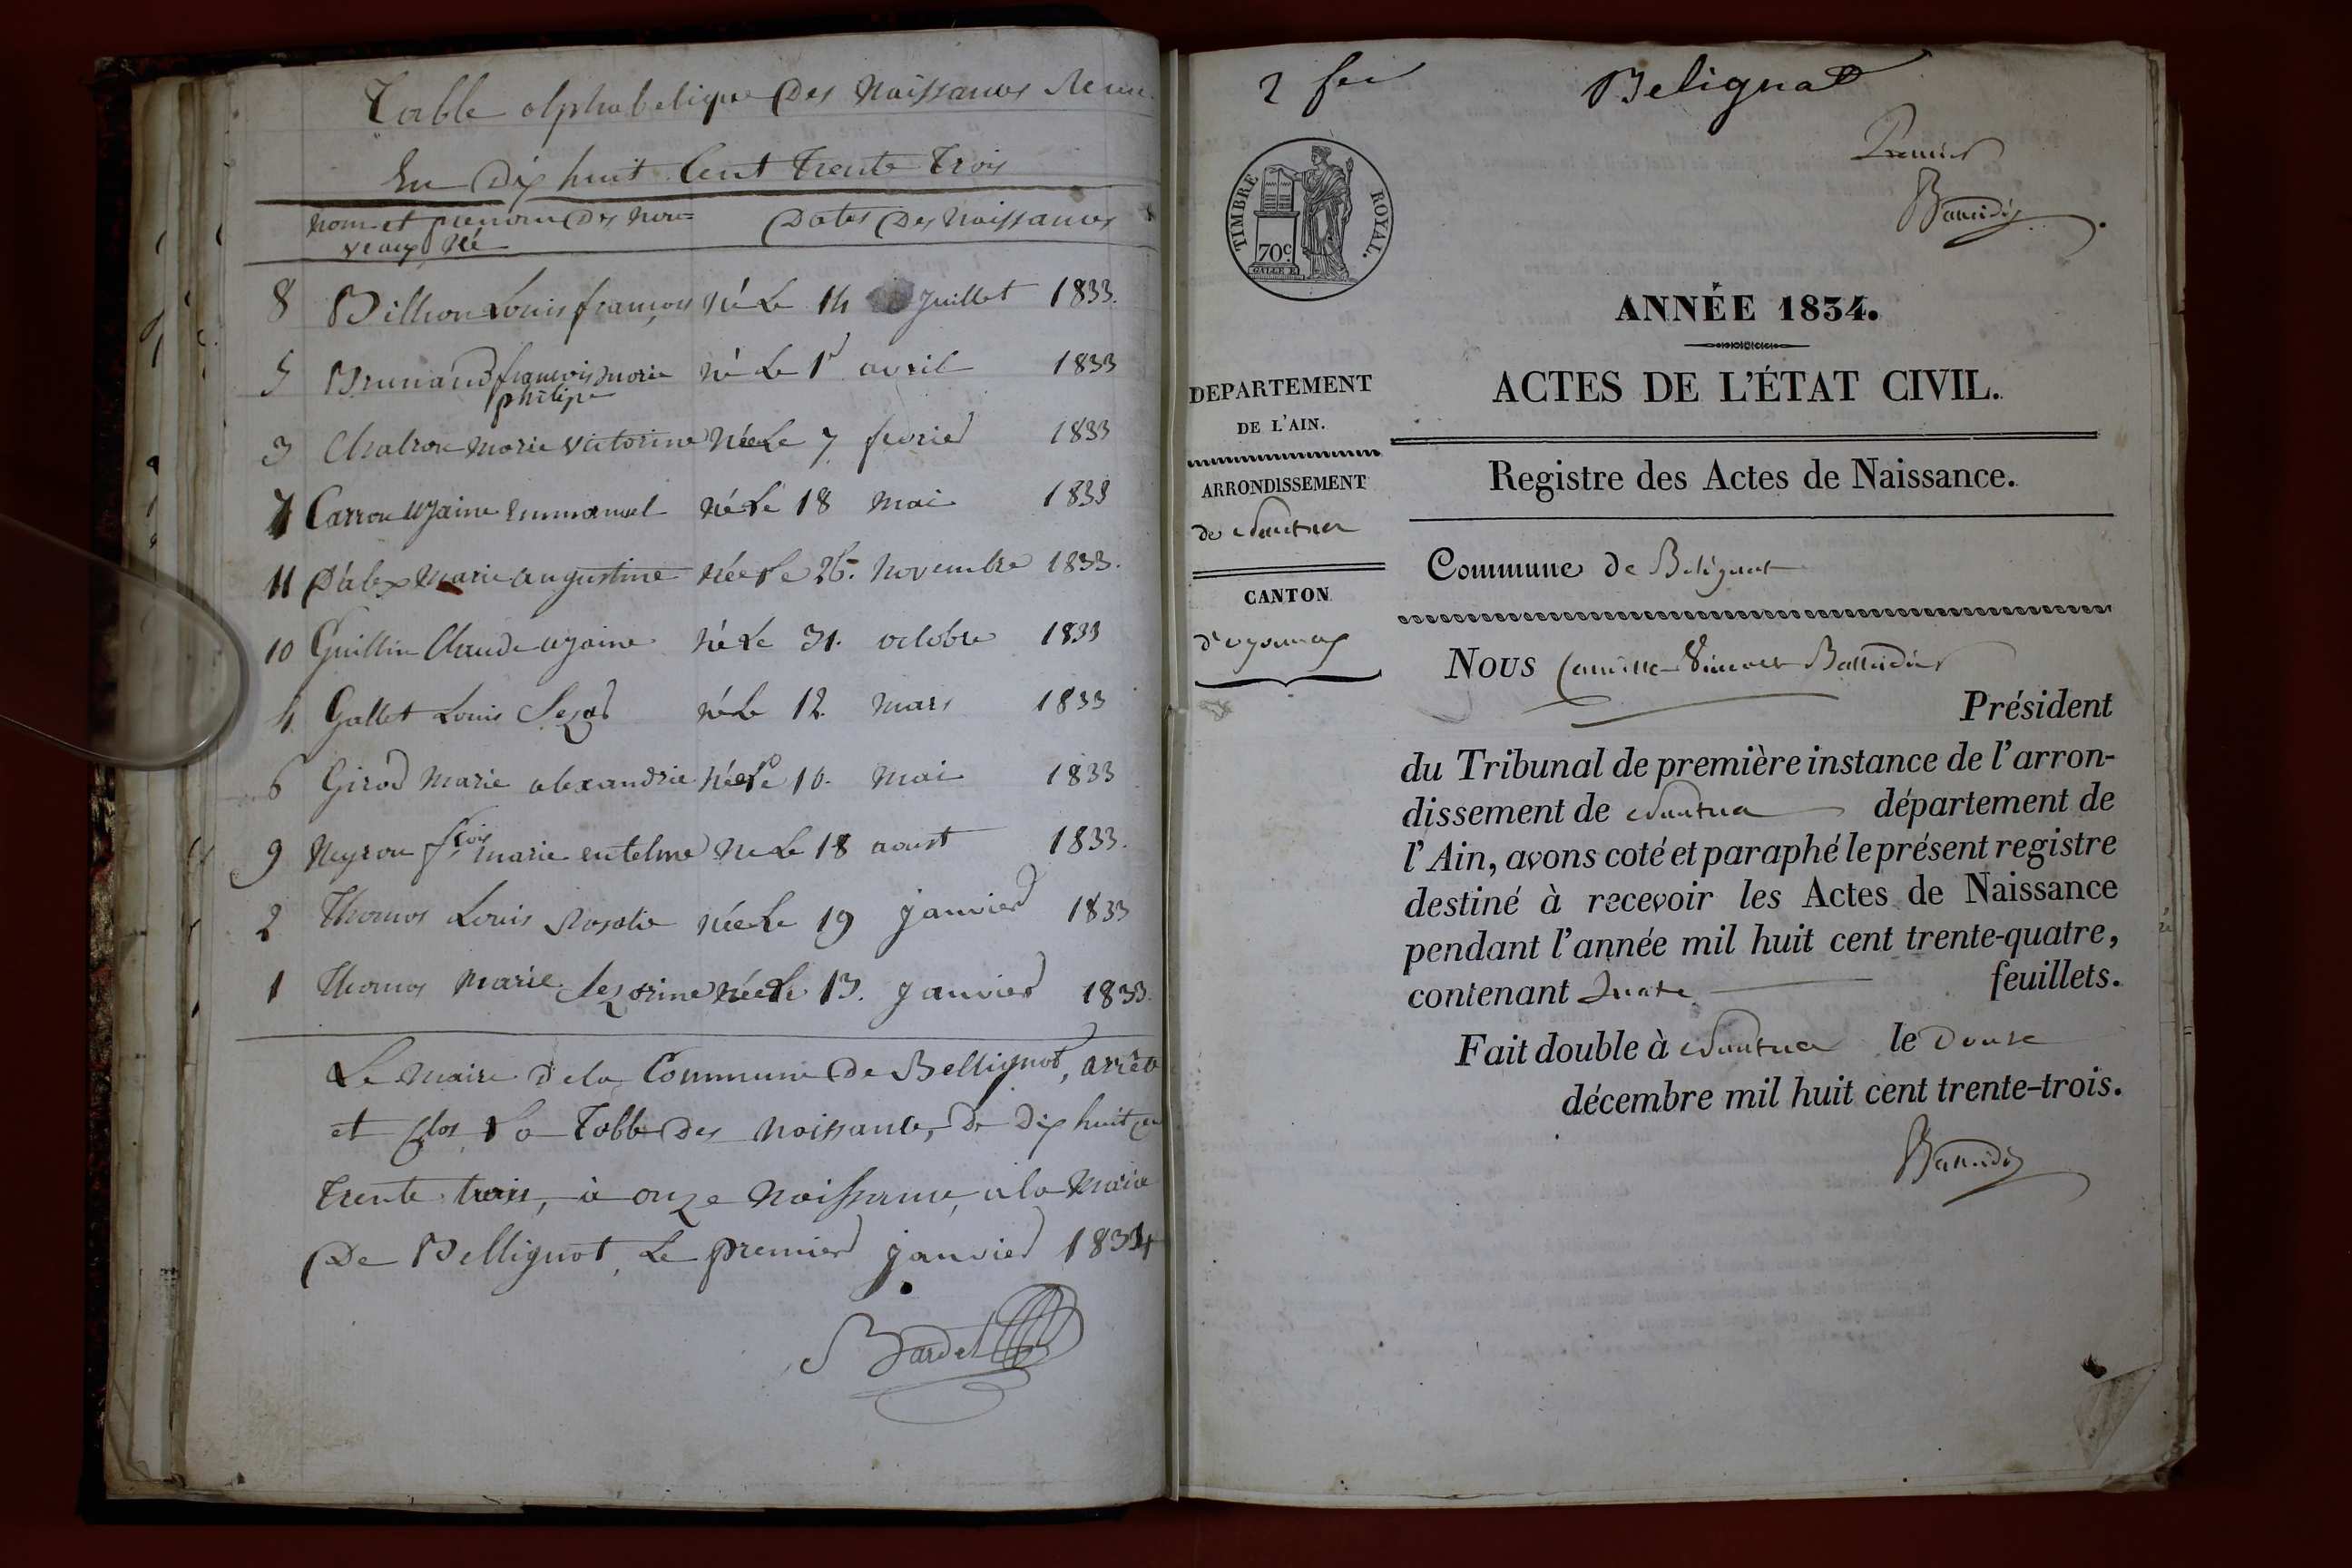 Table alphabetique Des Naissances
En Dix huit Cent Trente Trois
Nom et prenom Des Nou=
veaux Né
Dates Des Naissances
8 Billion Louis françois né Le 14 Juillet 1833.
5 Brunaud françois marie né Le 1r avril 1833
philipe
3 Chatron Marie Victorine née Le 7 fevrier 1833
7 Carron ujaine Emmanuel né Le 18 Mai 1833
11 Marie augustine née Le 26. Novembre 1833.
10 Guillin Claude ujaine né Le 31. octobre 1833
4 Gallet Louis Sezar né Le 12. Mars 1833
6 Girod Marie alexandrie née Le 10. Mai 1833
9 Neyron fçois marie entelme né Le 18 aoust 1833.
2 Thomas Louis Rosalie née Le 19 janvier 1833
1 Thomas Marie Sezorine née Le 13. janvier 1833.
Le Maire de la Commune De Bellignat, arrête
et Clos La Table Des Naissance, De Dix huit
Trente trois, à onze Naissance, a la Mairie
De Bellignat, Le premier janvier 1834
Bardet
2 feu
Belignat
Premier
TIMBRE ROYAL.
70c
GALLE F.
ANNÉE 1834.
ACTES DE L'ÉTAT CIVIL.
DEPARTEMENT
DE L'AIN.
ARRONDISSEMENT
de Nantua
CANTON
d'oyonnax
Registre des Actes de Naissance.
Commune de Belignat
Nous Camille Vincent
Président
du Tribunal de première instance de l'arron-
dissement de Nantua département de
l'Ain, avons coté et paraphé le présent registre
destiné à recevoir les Actes de Naissance
pendant l'année mil huit cent trente-quatre,
contenant quatre feuillets.
Fait double à Nantua le Douze
décembre mil huit cent trente-trois.